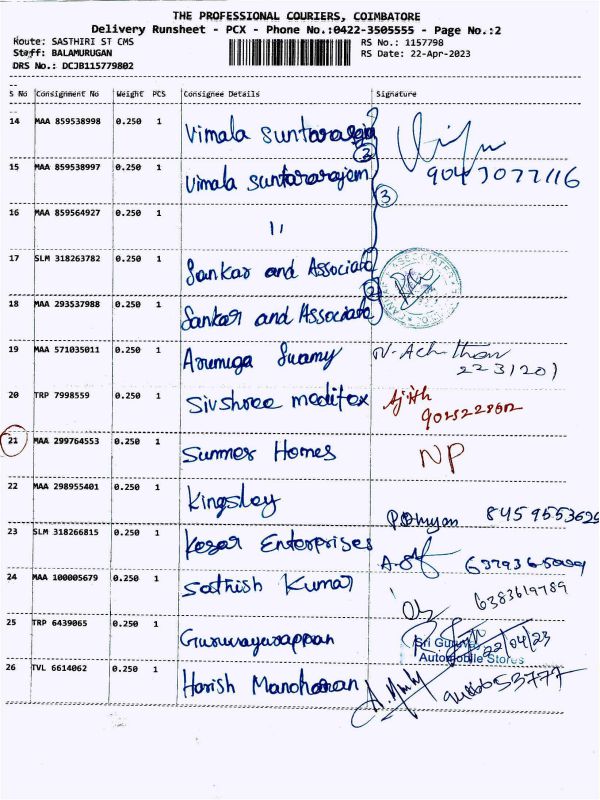 THE PROFESSIONAL COURIERS, COIMBATORE
Delivery Runsheet - PCX - Phone No.:0422-3505555 - Page No.:2
Route: SASTHIRI ST CMS
RS No.: 1157798
Staff: BALAMURUGAN
RS Date: 22-Apr-2023
DRS No.: DCJB115779802
S No Consignment No Weight PCS Consignee Details Signature
14 MAA 859538998 0.250 1 Vimala Suntararajan
2
15 MAA 859538997 0.250 1 Vimala Suntararajam 9043077116
3
16 MAA 859564927 0.250 1 "
17 SLM 318263782 0.250 1 Sankar and Associate
2
18 MAA 293537988 0.250 1 Sankar and Associate
19 MAA 571035011 0.250 1 Arumuga Swamy N. Achithan
223/201
20 TRP 7998559 0.250 1 Sivshree meditex Ajith
21 MAA 299764553 0.250 1 Summer Homes NP
22 MAA 298955401 0.250 1 Kingsley 8459553625
23 SLM 318266815 0.250 1 Kesar Enterprises
24 MAA 100005679 0.250 1 Sathish Kumar 6383619789
25 TRP 6439065 0.250 1 Guruvayurappan 22/04/23
Automobile Stores
26 TVL 6614062 0.250 1 Harish Manoharan